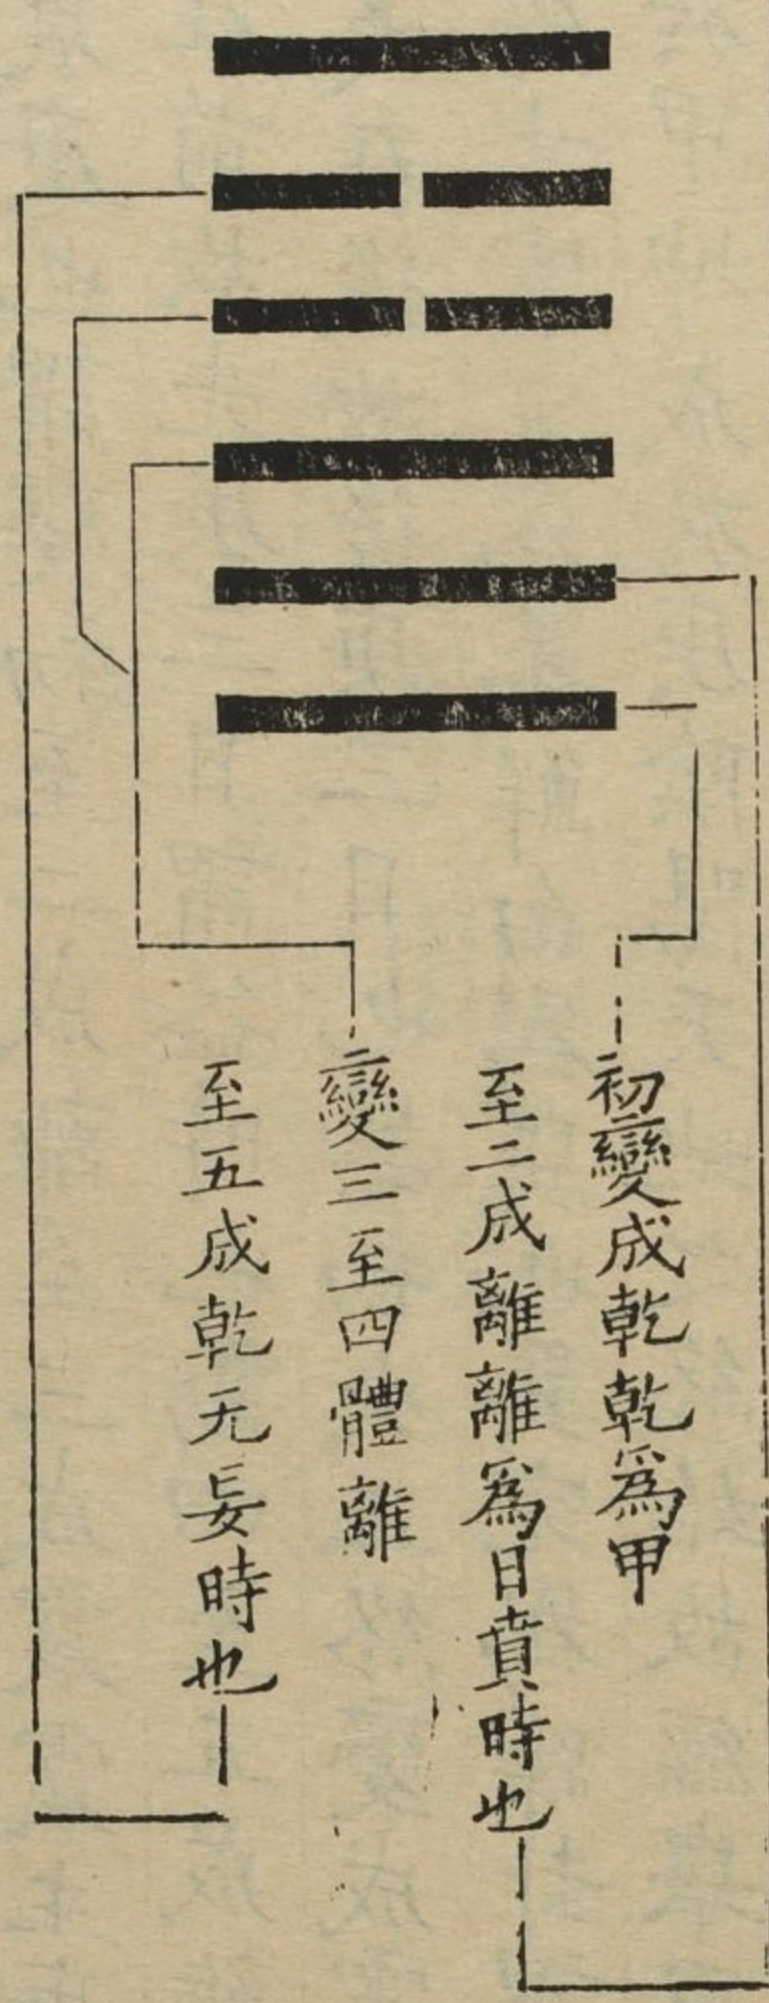 初變成乾乾爲甲
至二成離離爲日賁時也
變三至四體離
至五成乾无妄時也